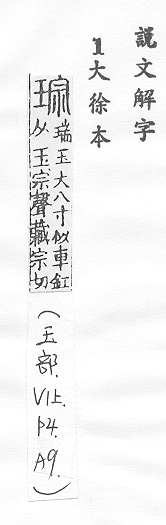 説文解字
1大徐本
琮
瑞玉大八寸似車釭
从玉宗聲藏宗切
(玉部. V1上. P4. A9.)